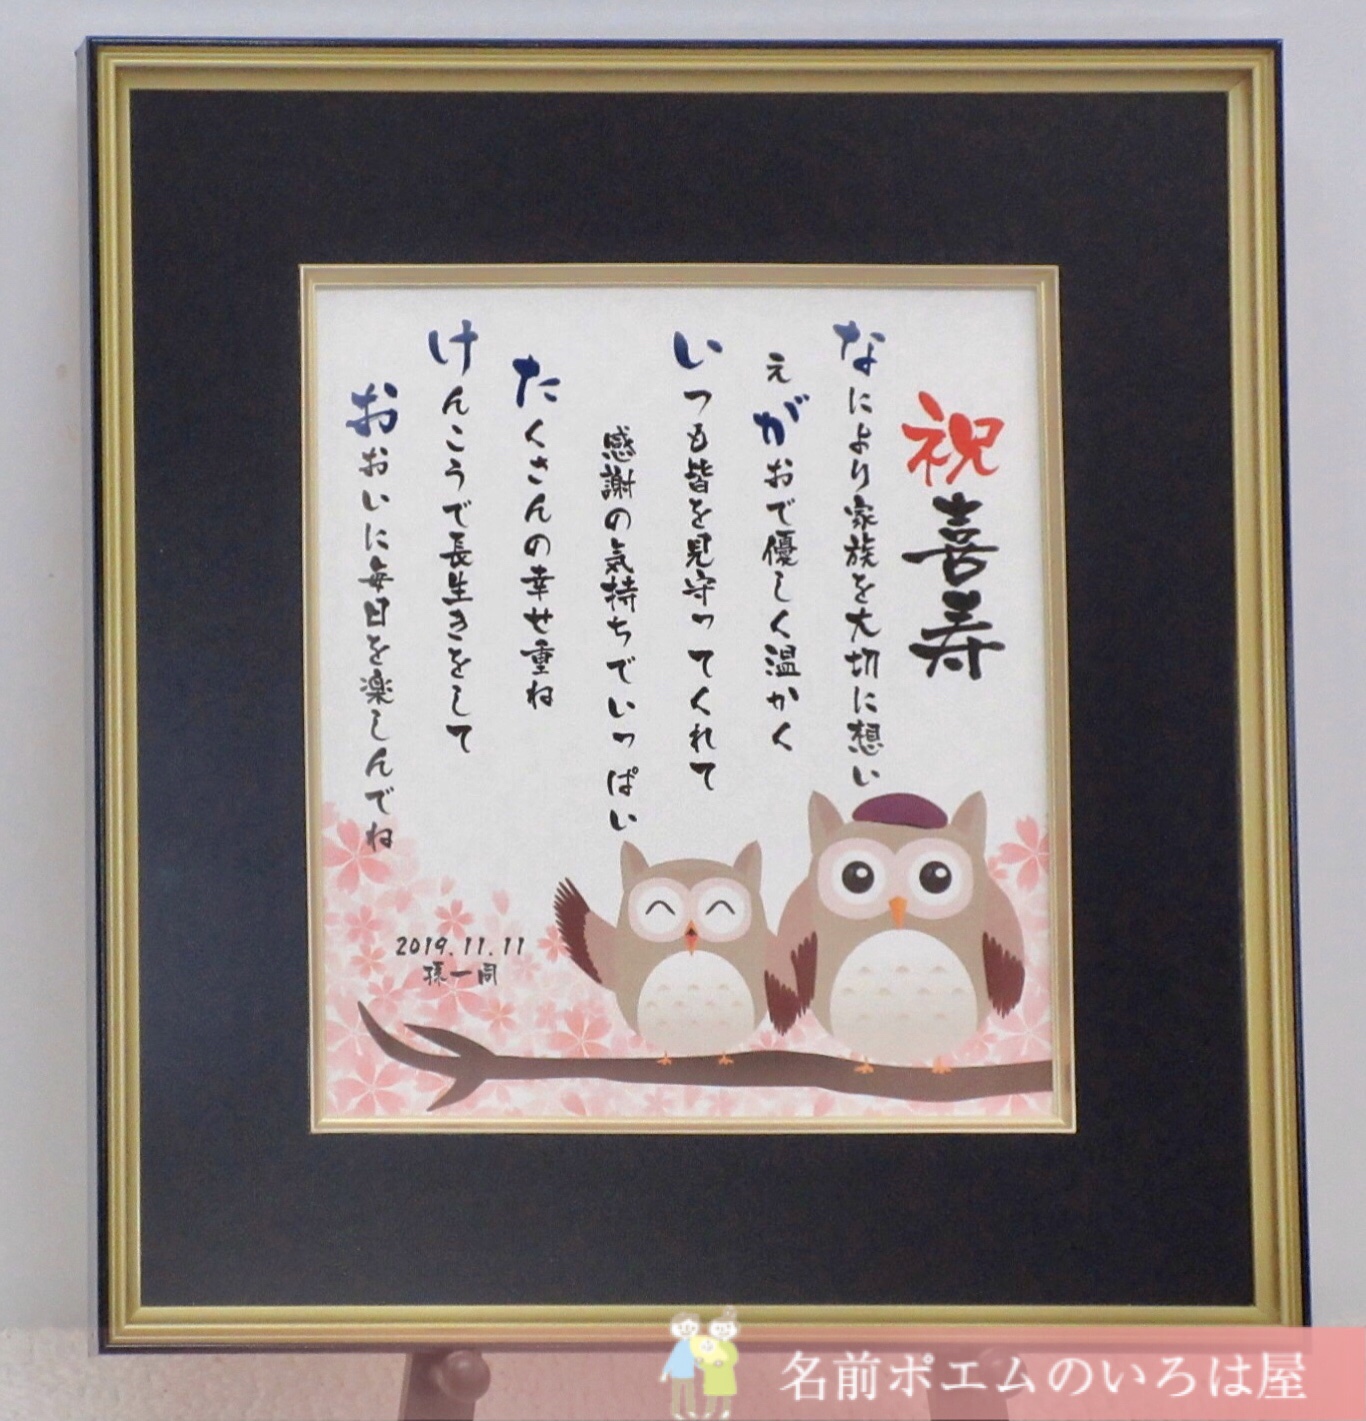 祝喜寿
なにより家族を大切に想い
えがおで優しく温かく
いつも皆を見守ってくれて
感謝の気持ちでいっぱい
たくさんの幸せ重ね
けんこうで長生きをして
おおいに毎日を楽しんでね
2019.11.11
孫一同
名前ポエムのいろは屋